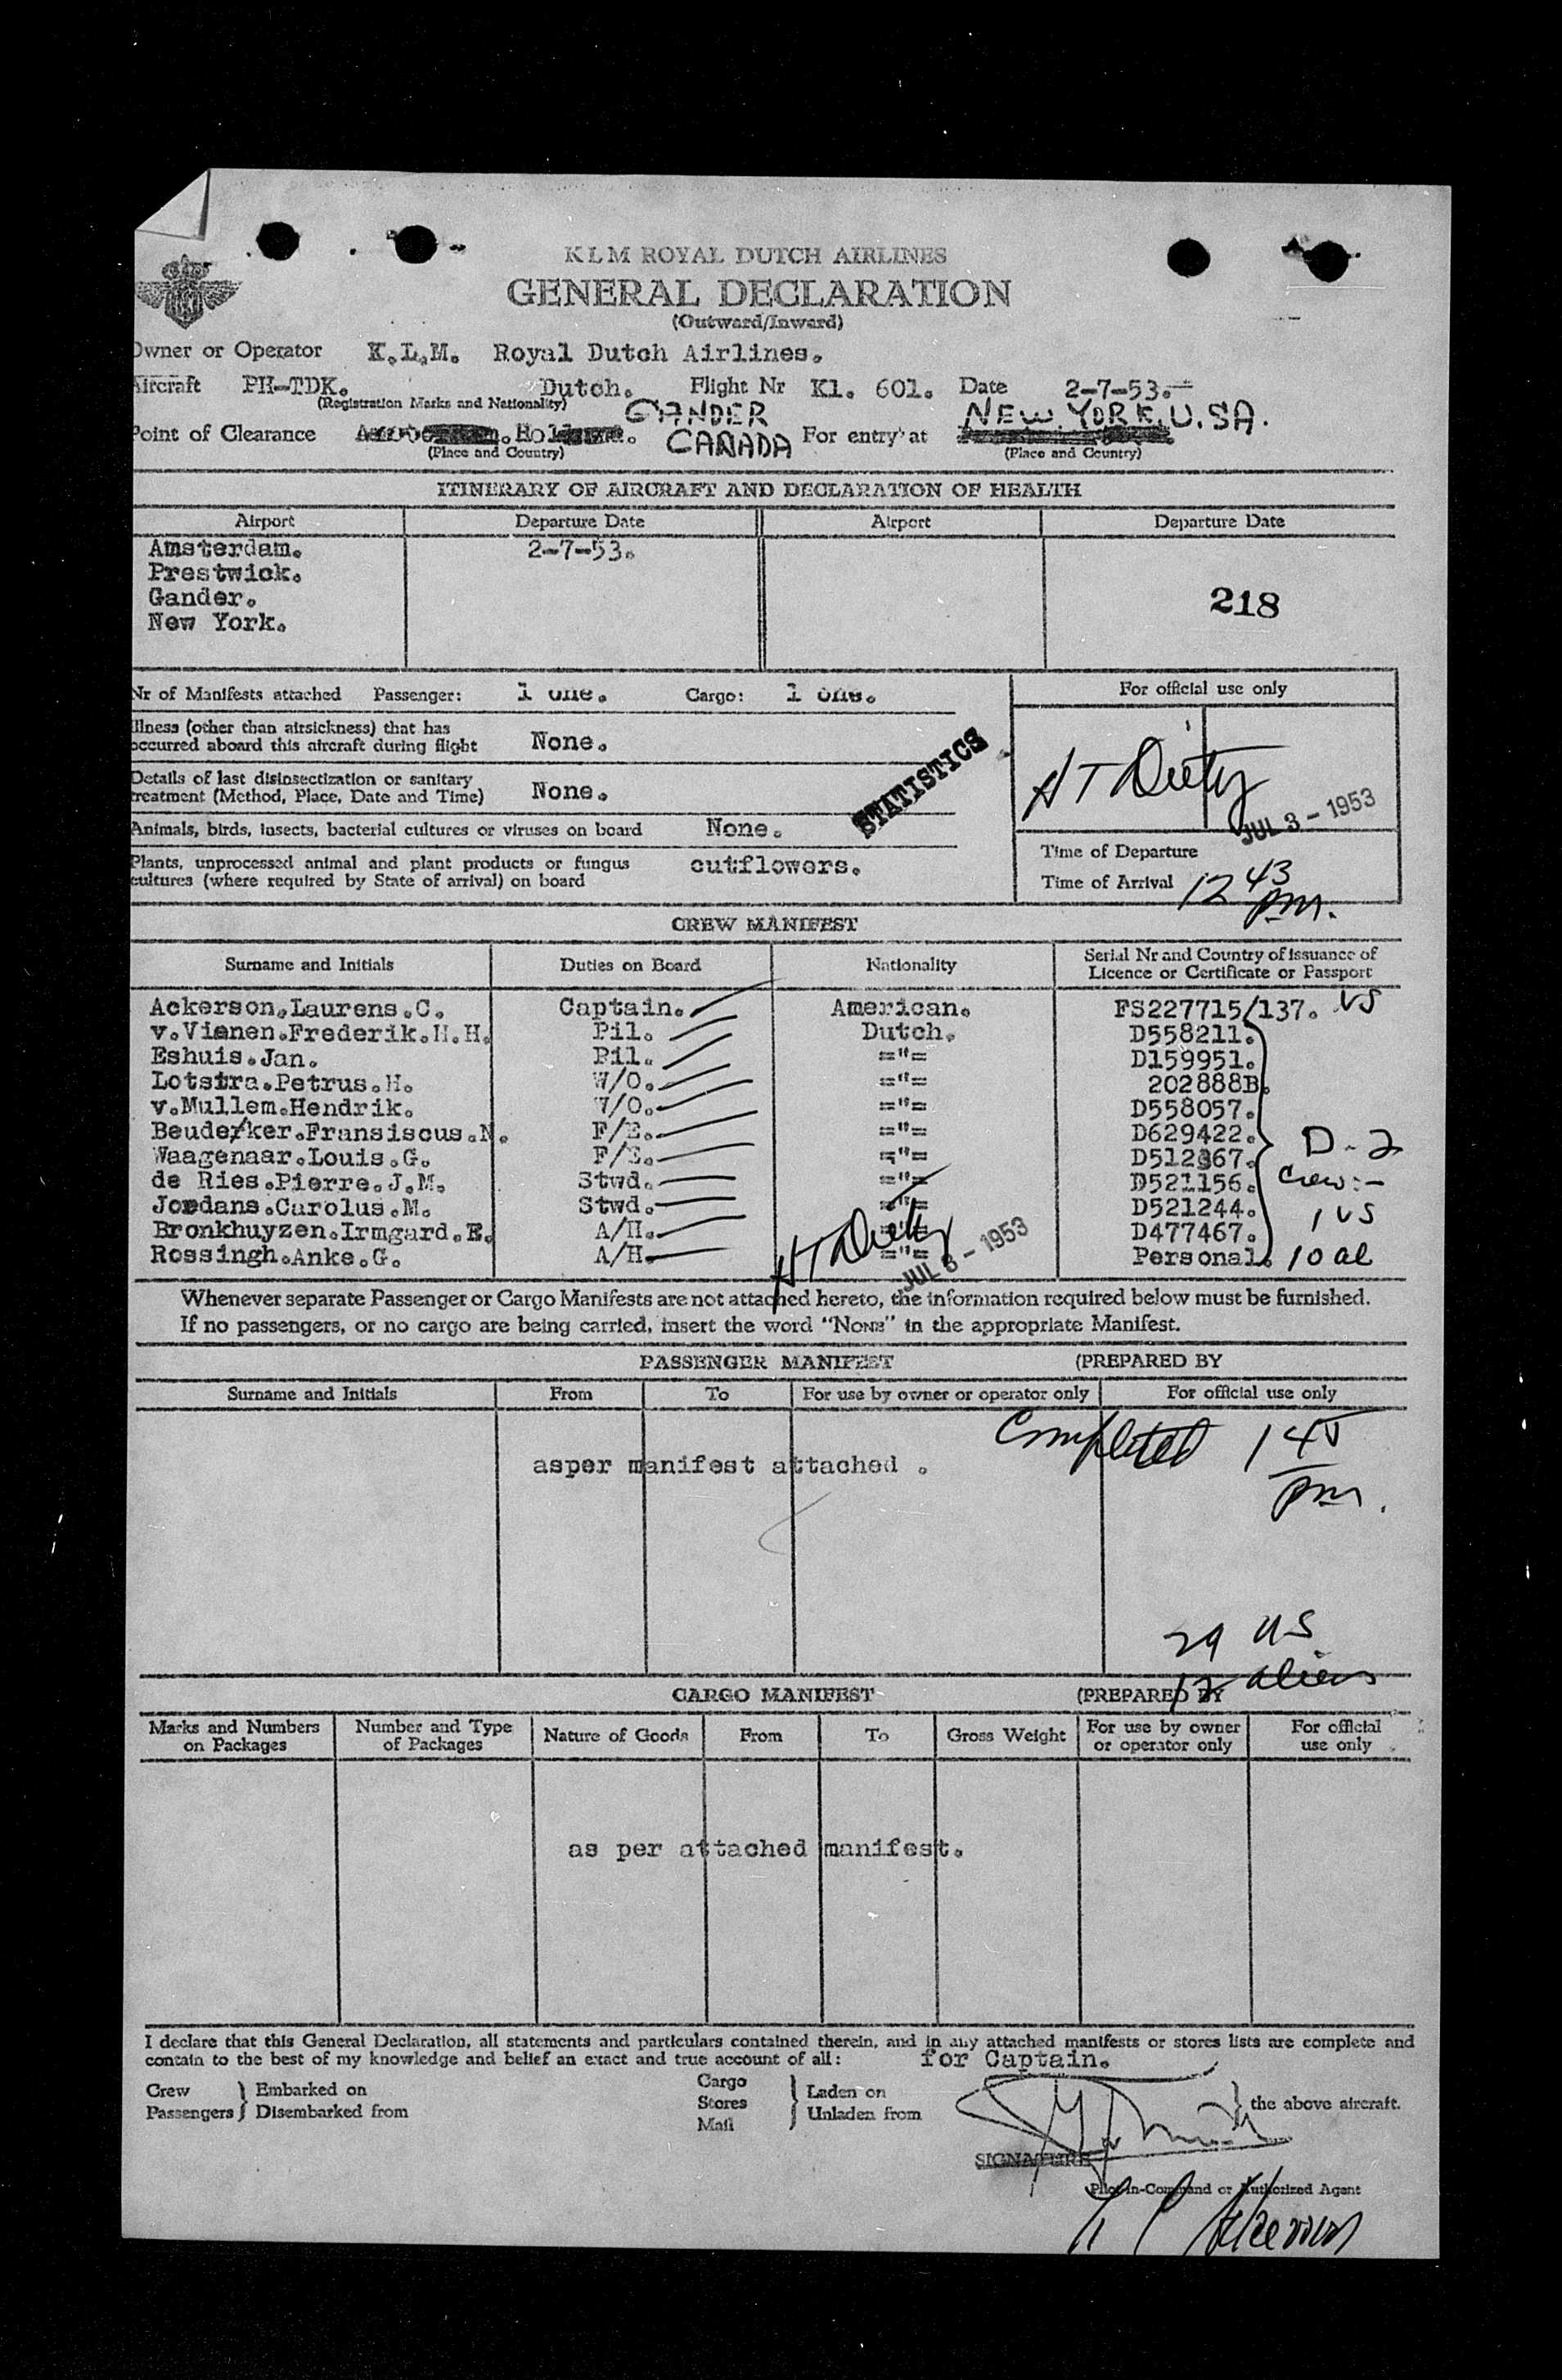 KLM ROYAL DUTCH AIRLINES
GENERAL DECLARATION
(Outward/Inward)
Owner or Operator K.L.M. Royal Dutch Airlines.
Aircraft PH-TDK. Dutch. Flight Nr Kl. 601. Date 2-7-53.-
(Registration Marks and Nationality)
GANDER CANADA
NEW YORK, U.SA.
Point of Clearance For entry at
(Place and Country) (Place and Country)
ITINERARY OF AIRCRAFT AND DECLARATION OF HEALTH
Airport Departure Date Airport Departure Date
Amsterdam. 2-7-53.
Prestwick.
Gander. 218
New York.
Nr of Manifests attached Passenger: 1 one. Cargo: 1 one.
For official use only
Illness (other than airsickness) that has
occurred aboard this aircraft during flight None.
STATISTICS
Details of last disinsectization or sanitary
treatment (Method, Place, Date and Time) None.
JUL 3 - 1953
Animals, birds, insects, bacterial cultures or viruses on board None.
Plants, unprocessed animal and plant products or fungus
cultures (where required by State of arrival) on board cutflowers.
Time of Departure
Time of Arrival 12 43 pm.
CREW MANIFEST
Surname and Initials Duties on Board Nationality Serial Nr and Country of issuance of
Licence or Certificate or Passport
Ackerson.Laurens.C. Captain. American. FS227715/137.
v.Vianen.Frederik.H.H. Pil. Dutch. D558211.
Eshuis.Jan. Pil. ="= D159951.
Lotstra.Petrus.H. W/O. ="= 202888B.
v.Mullem.Hendrik. W/O. ="= D558057.
Beudeker.Fransiscus.N. F/E. ="= D629422. D-2
Waagenaar.Louis.G. F/E. ="= D512367.
de Ries.Pierre.J.M. Stwd. ="= D521156. Crew:-
Jordans.Carolus.M. Stwd. ="= D521244. 1 US
Bronkhuyzen.Irmgard.E. A/H. ="= D477467.
Rossingh.Anke.G. A/H. ="= Personal. 10 al
JUL 3 - 1953
Whenever separate Passenger or Cargo Manifests are not attached hereto, the information required below must be furnished.
If no passengers, or no cargo are being carried, insert the word "NONE" in the appropriate Manifest.
PASSENGER MANIFEST (PREPARED BY
Surname and Initials From To For use by owner or operator only For official use only
Completed 145 pm.
asper manifest attached .
29 US
12 aliens
CARGO MANIFEST (PREPARED BY
Marks and Numbers on Packages Number and Type of Packages Nature of Goods From To Gross Weight For use by owner or operator only For official use only
as per attached manifest.
I declare that this General Declaration, all statements and particulars contained therein, and in any attached manifests or stores lists are complete and
contain to the best of my knowledge and belief an exact and true account of all: for Captain.
Crew Passengers } Embarked on Disembarked from Cargo Stores Mail } Laden on Unladen from } the above aircraft.
SIGNATURE
Pilot-in-Command or Authorized Agent